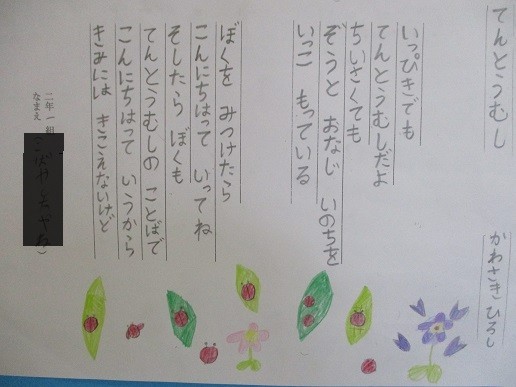 てんとうむし
かわさきひろし
いっぴきでも
てんとうむしだよ
ちいさくても
ぞうと おなじ いのちを
いっこ もっている
ぼくを みつけたら
こんにちはって いってね
そしたら ぼくも
てんとうむしの ことばで
こんにちはって いうから
きみには きこえないけど
二年一組
なまえ